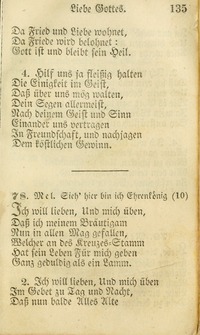 Liebe Gottes. 135
Da Fried und Liebe wohnet,
Da Friede wird belohnet:
Gott ist und bleibt sein Heil.
4. Hilf uns ja fleißig halten
Die Einigkeit im Geist,
Daß über uns mög walten,
Dein Segen allermeist,
Nach deinem Geist und Sinn
Einander uns vertragen
In Freundschaft, und nachjagen
Dem köstlichen Gewinn.
78. Mel. Sieh' hier bin ich Ehrenkönig (10)
Ich will lieben, Und mich üben,
Daß ich meinem Bräutigam
Nun in allen Mag gefallen,
Welcher an des Kreuzes-Stamm
Hat sein Leben Für mich geben
Ganz geduldig als ein Lamm.
2. Ich will lieben, Und mich üben
Im Gebet zu Tag und Nacht,
Daß nun balde Alles Alte